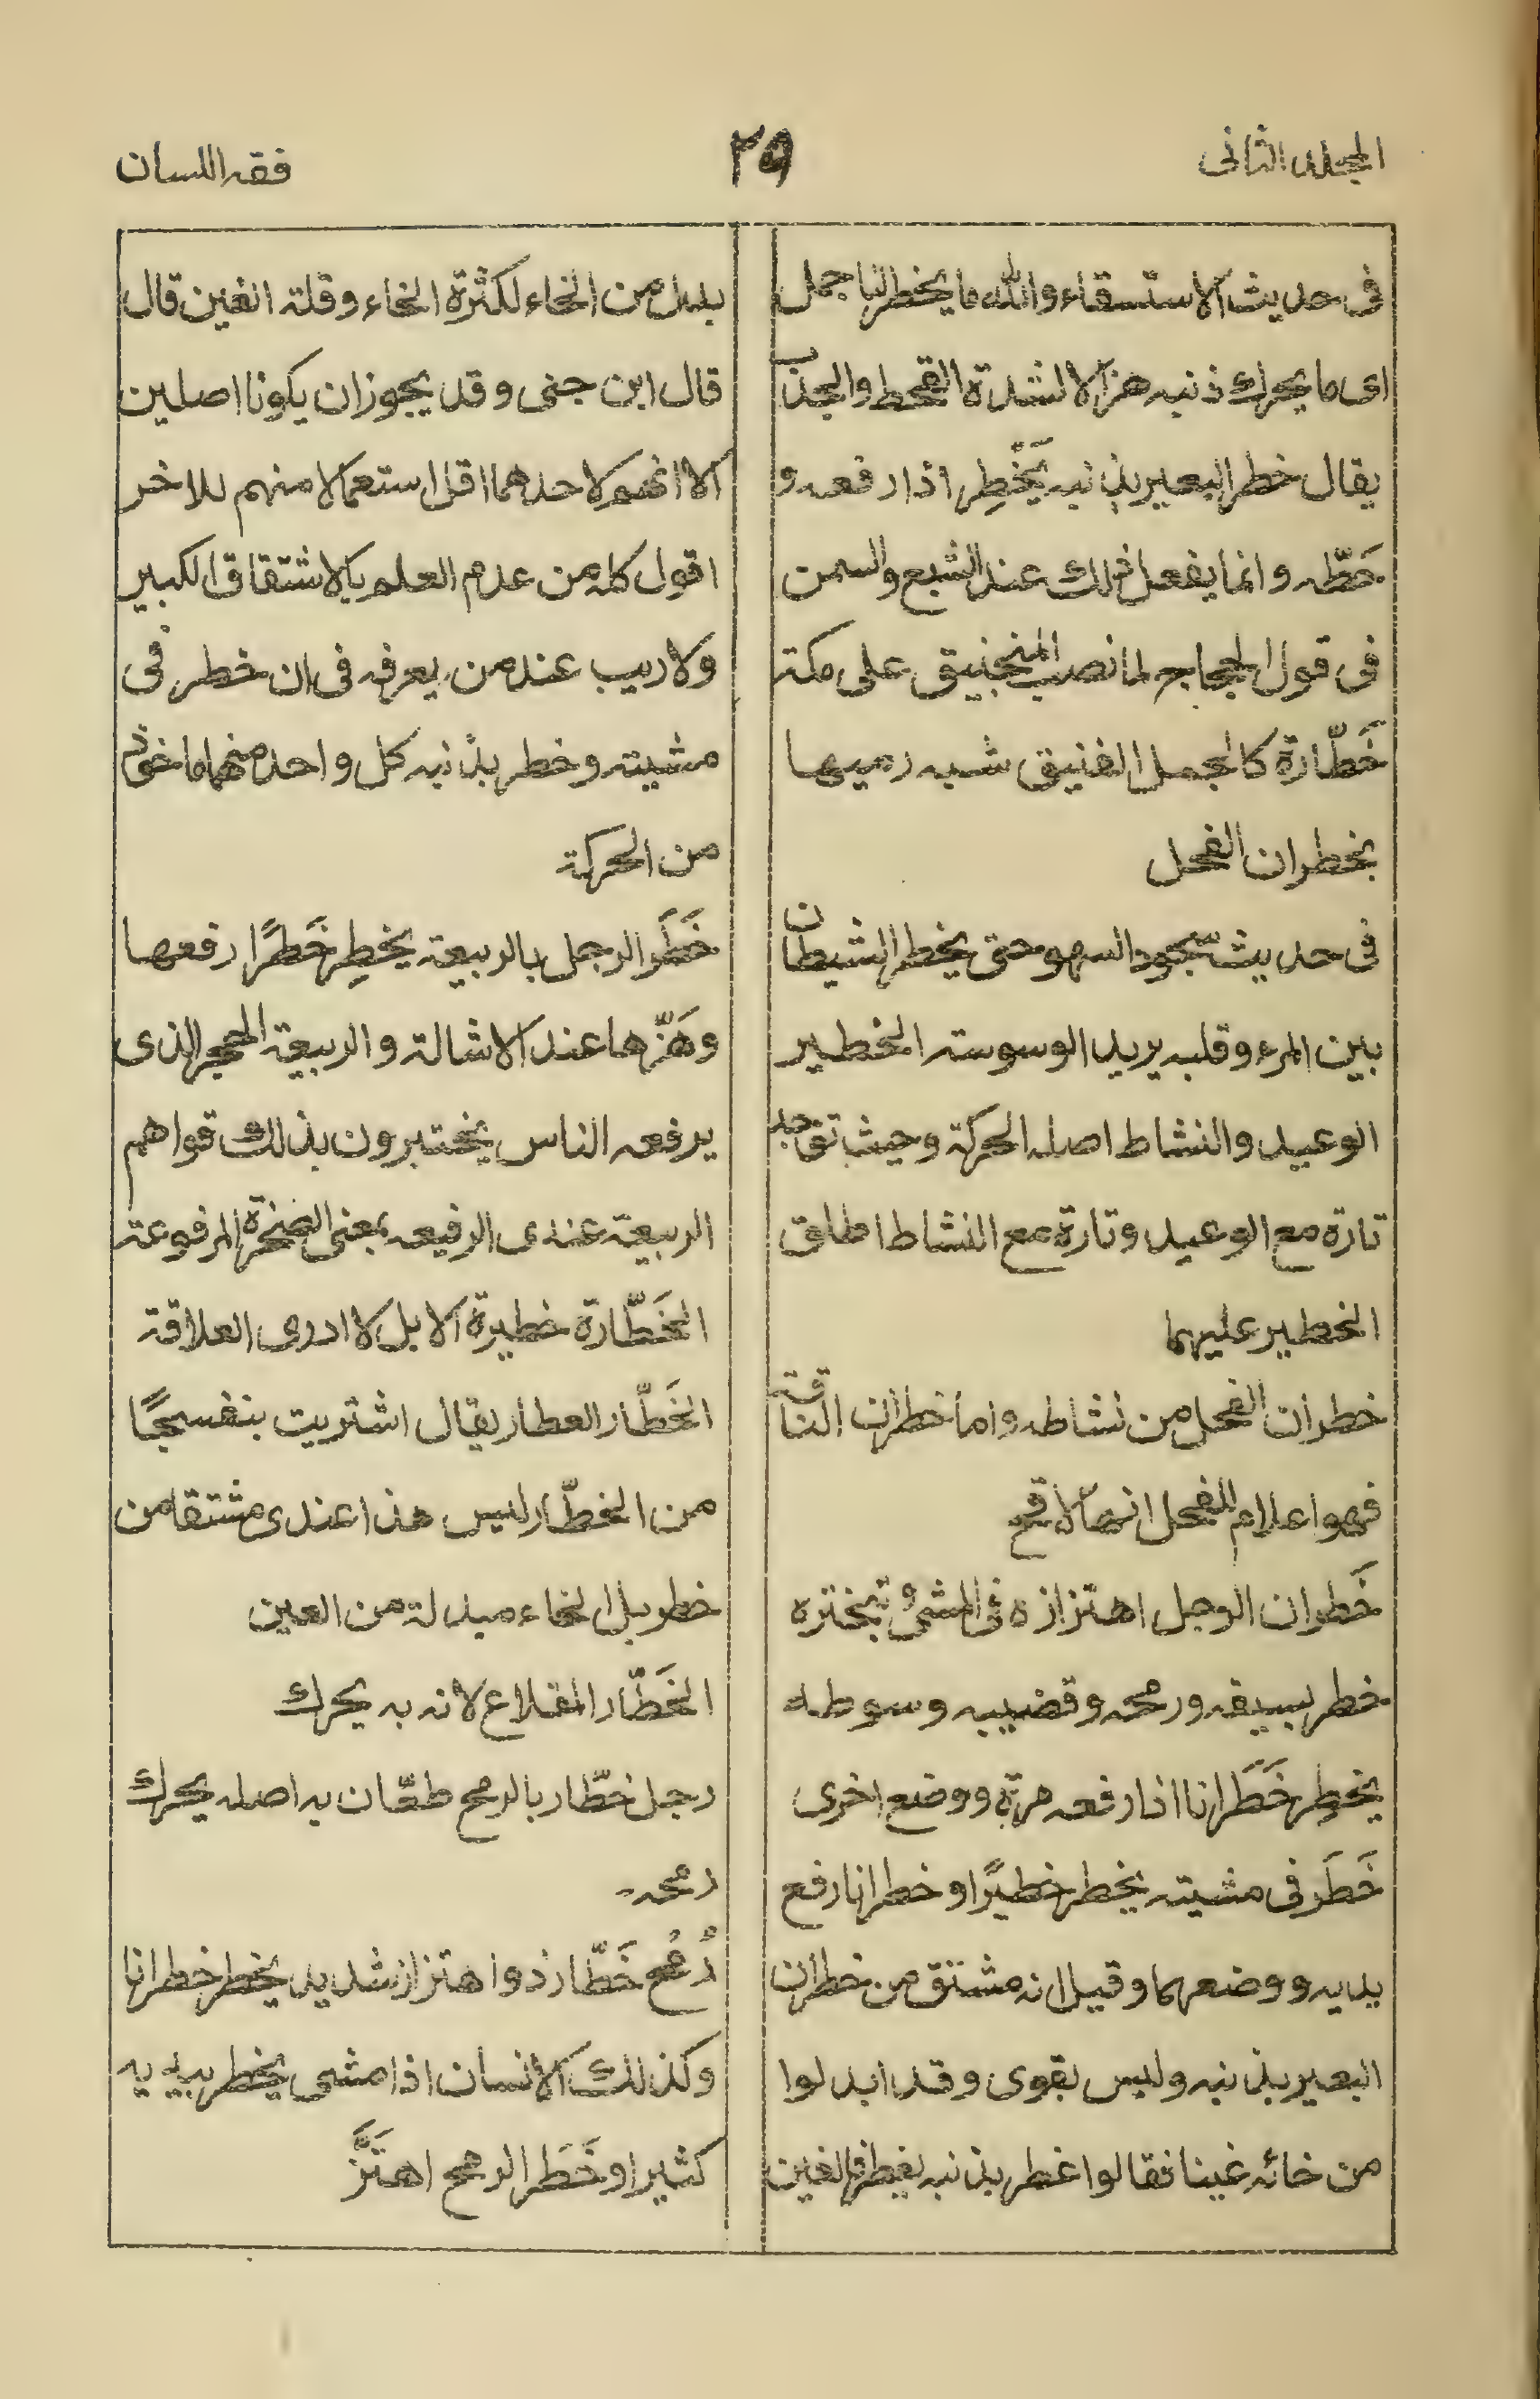 المجلد الثانی
٢٥
فقه اللسان
فی حدیث الاستسقاء والله ما یخطر لنا جمل
ای ما یحرك ذنبه هزالا لشدة القحط والجدب
یقال خطر البعیر بذنبه یَخْطِر اذا رفعه و
حَطّه وانما یفعل ذلك عند الشبع والسمن
فی قول الحجاج لما نصب المنجنیق علی مكة
خَطّارة كالجمل الفنیق شبه رمیها
بخطران الفحل
فی حدیث سجود السهو حتی یخطر الشیطان
بین المرء وقلبه یرید الوسوسة الخطیر
الوعید والنشاط اصله الحركة وحیث توجد
تارة مع الوعید وتارة مع النشاط اطلق
الخطیر علیهما
خطران الفحل من نشاطه واما خطران الناقة
فهو اعلام للفحل انها لاقح
خَطران الرجل اهتزازه فی المشی وتبختره
خطر بسیفه ورمحه وقضیبه وسوطه
یخطِر خَطَرانا اذا رفعه مرة ووضع اخری
خَطَر فی مشیته یخطر خطیرًا وخطرانا رفع
یدیه ووضعهما وقیل انه مشتق من خطران
البعیر بذنبه ولیس بقوی وقد ابدلوا
من خائه غینا فقالوا غطر بذنبه یغطر فالغین
بدل من الخاء لكثرة الخاء وقلة الغین قال
قال ابن جنی وقد یجوز ان یكونا اصلین
الا انهم لاحدهما اقل استعمالا منهم للاخر
اقول كله من عدم العلم بالاشتقاق الكبیر
ولاریب عند من یعرفه فی ان خطر فی
مشیته وخطر بذنبه كل واحد منهما ماخوذ
من الحركة
خَطَر الرجل بالربیعة یخطِر خَطرًا رفعها
وهَزّها عند الاشالة والربیعة الحجر الذی
یرفعه الناس یختبرون بذلك قواهم
الربیعة عندی الرفیعه بمعنی الصخرة المرفوعة
الخَطّارة خطیرة الابل لا ادری العلاقة
الخَطّار العطار یقال اشتریت بنفسجًا
من الخطّار لیس هذا عندی مشتقا من
خطر بل الخاء مبدلة من العین
الخَطّار المقلاع لانه به یحرك
رجل خطّار بالرمح طعّان به اصله یحرك
رمحه
رُمح خَطّار ذو اهتزاز شدید یخطر خطرانا
وكذلك الانسان اذا مشی یخطر بیدیه
كثیرا وخَطَر الرمح اهتَزَّ